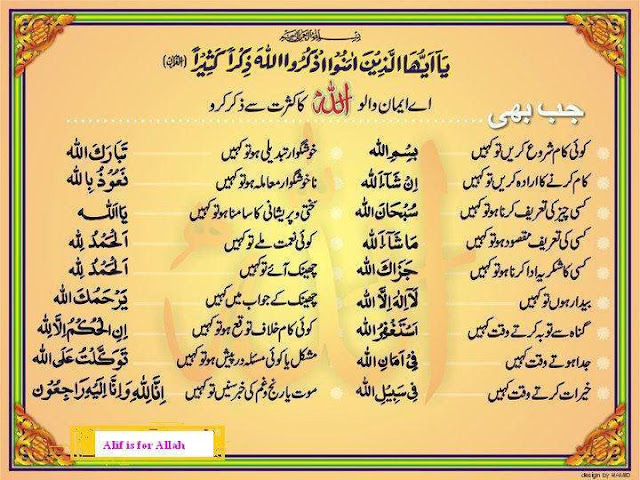 بسم الله الرحمن الرحيم
يَا اَيُّهَا الَّذِيْنَ اٰمَنُوا اذْكُرُوا اللهَ ذِكْراً كَثِيْراً (القرآن)
اے ایمان والو اللہ کا کثرت سے ذکر کرو
جب بھی
کوئی کام شروع کریں تو کہیں بِسْمِ اللہ
کام کرنے کا ارادہ کریں تو کہیں اِنْ شَآءَ اللہ
کسی چیز کی تعریف کرنا ہو تو کہیں سُبْحَانَ اللہ
کسی کی تعریف مقصود ہو تو کہیں مَا شَآءَ اللہ
کسی کا شکریہ ادا کرنا ہو تو کہیں جَزَاکَ اللہ
بیدار ہوں تو کہیں لَا اِلٰهَ اِلَّا اللہ
گناہ سے توبہ کرتے وقت کہیں اَسْتَغْفِرُ اللہ
جدا ہوتے وقت کہیں فِیْ اَمَانِ اللہ
خیرات کرتے وقت کہیں فِیْ سَبِیْلِ اللہ
خوشگوار تبدیلی ہو تو کہیں تَبَارَکَ اللہ
ناخوشگوار معاملہ ہو تو کہیں نَعُوْذُ بِاللہ
سختی و پریشانی کا سامنا ہو تو کہیں یَا اَللہ
کوئی نعمت ملے تو کہیں اَلْحَمْدُ لِلّٰہ
چھینک آئے تو کہیں اَلْحَمْدُ لِلّٰہ
چھینک کے جواب میں کہیں یَرْحَمُکَ اللہ
کوئی کام خلاف توقع ہو تو کہیں اِنِ الْحُکْمُ اِلَّا لِلّٰہ
مشکل یا کوئی مسئلہ درپیش ہو تو کہیں تَوَکَّلْتُ عَلَی اللہ
موت یا رنج و غم کی خبر سنیں تو کہیں اِنَّا لِلّٰہِ وَاِنَّا اِلَیْہِ رَاجِعُوْن
Alif is for Allah
design by HAMID